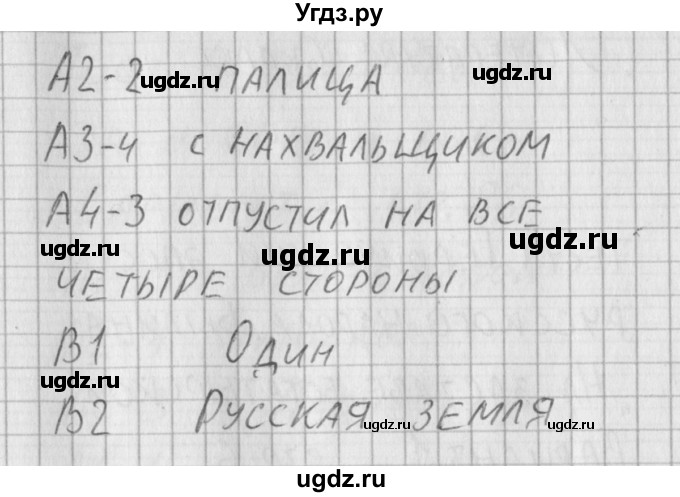 Угдз.ру
А2-2 ПАЛИЦА
А3-4 С НАХВАЛЬЩИКОМ
А4-3 ОТПУСТИЛ НА ВСЕ
ЧЕТЫРЕ СТОРОНЫ
В1 ОДИН
В2 РУССКАЯ ЗЕМЛЯ
ugdz.ru
ugdz.ru
ugdz.ru
ugdz.ru
ugdz.ru
ugdz.ru
ugdz.ru
ugdz.ru
ugdz.ru